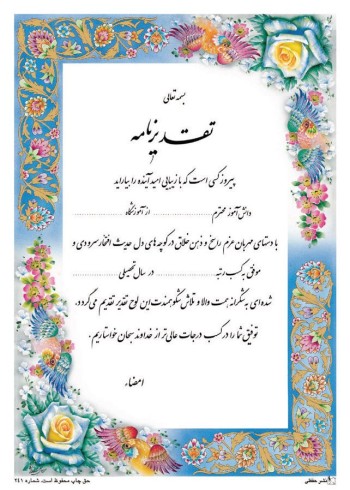 بسمه تعالی
تقدیرنامه
پیروز کسی است که با زیبایی امید آینده را بیاراید
دانش آموز محترم .............................. از آموزشگاه ..............................
با دستهای مهربان عزم راسخ و ذهن خلاق در کوچه های دل حدیث افتخار سرودی و
موفق به کسب رتبه .............................. در سال تحصیلی ..............................
شده ای به شکرانه همت والا و تلاش شکوهمندت این لوح تقدیر تقدیم می گردد.
توفیق شما را در کسب درجات عالی تر از خداوند سبحان خواستاریم.
امضاء
نشر حافظی
حق چاپ محفوظ است. شماره ۲۴۱